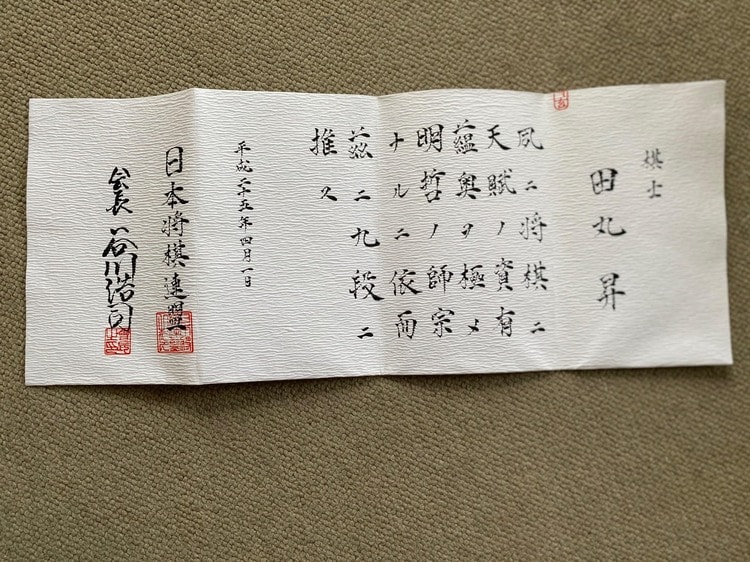 棋士
田丸昇
夙ニ将棋ニ
天賦ノ資有
蘊奥ヲ極メ
明哲ノ師宗
ナルニ依而
茲ニ九段ニ
推ス
平成二十五年四月一日
日本将棋連盟
会長 谷川浩司